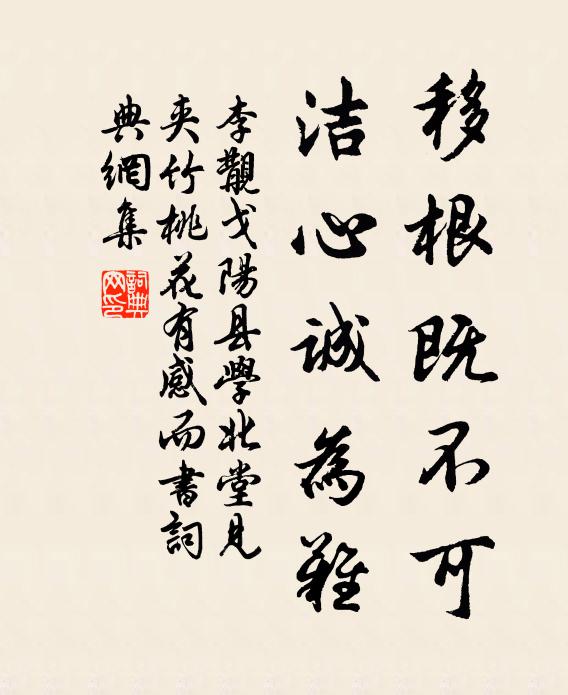 移根既不可
洁心诚為難
李觏戈陽县學北堂見
夹竹桃花有感而書詞
典網集
詞典網印